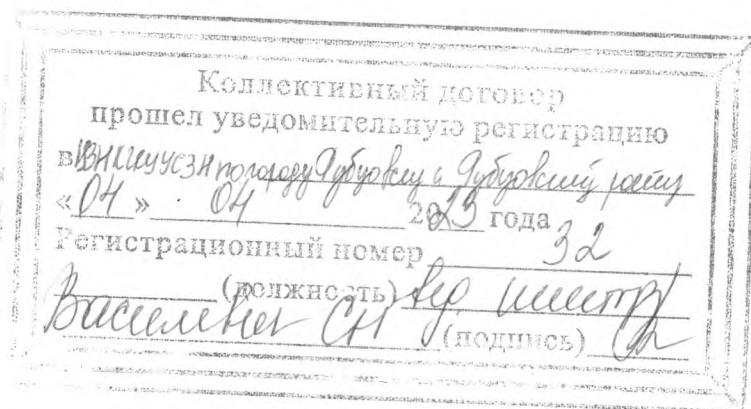 Коллективный договор
прошел уведомительную регистрацию
в по городу Рубцовску и Рубцовскому району
«04» 04 2023 года
Регистрационный номер 32
(должность) вед. инспектор
СН (подпись)